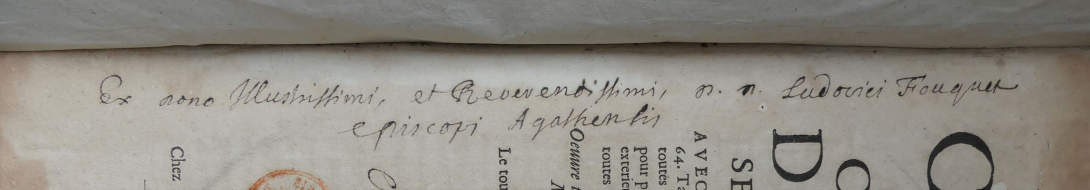 Ex dono Illustrissimi, et Reverendissimi, D. D. Ludovici Fouquet
episcopi Agathensis
Chez
Le tou
Oeuure
AVEC
64. Ta
toutes
pour p
exterie
toutes
SE
D